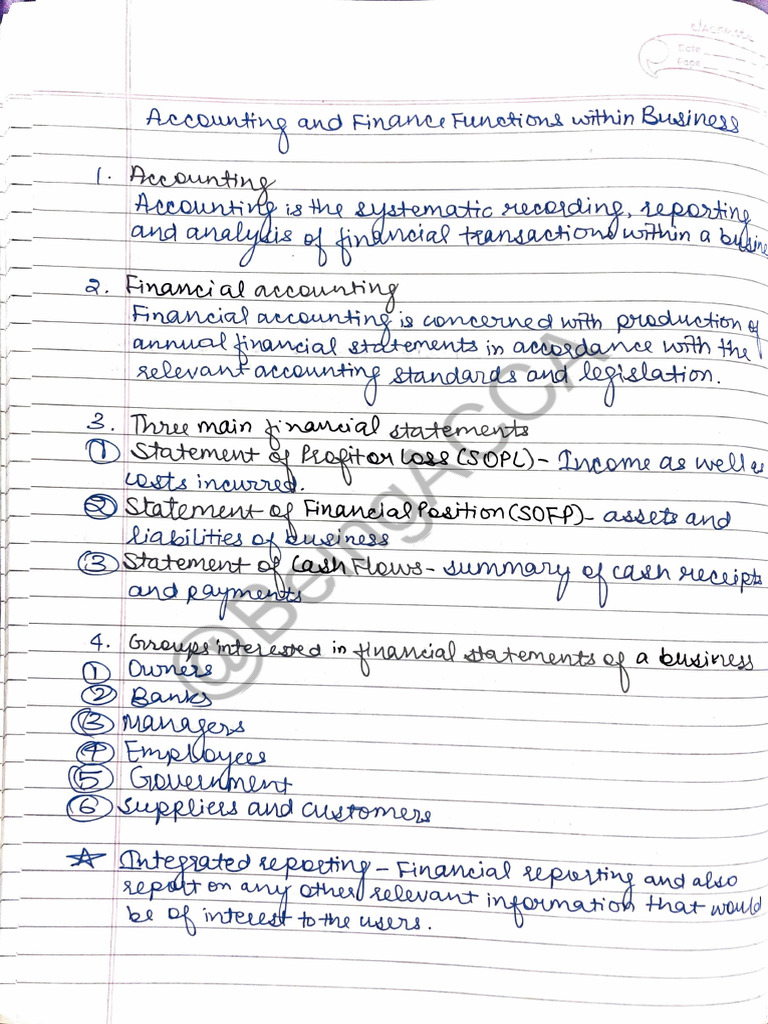 classmate
Date
Page
Accounting and Finance Functions within Business
1. Accounting
Accounting is the systematic recording, reporting
and analysis of financial transactions within a busine
2. Financial accounting
Financial accounting is concerned with production of
annual financial statements in accordance with the
relevant accounting standards and legislation.
3. Three main financial statements
① Statement of Profit or Loss (SOPL) - Income as well as
costs incurred.
② Statement of Financial Position (SOFP) - assets and
liabilities of business
③ Statement of Cash Flows - summary of cash receipts
and payments
4. Groups interested in financial statements of a business
① Owners
② Banks
③ Managers
④ Employees
⑤ Government
⑥ Suppliers and customers
☆ Integrated reporting - Financial reporting and also
report on any other relevant information that would
be of interest to the users.
@BeingACCA